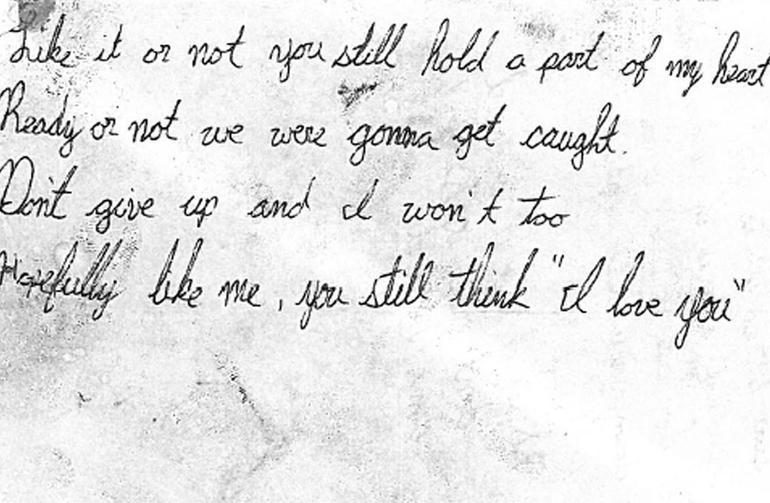 Like it or not you still hold a part of my heart
Ready or not we were gonna get caught.
Don't give up and I won't too
Hopefully like me, you still think "I love you"